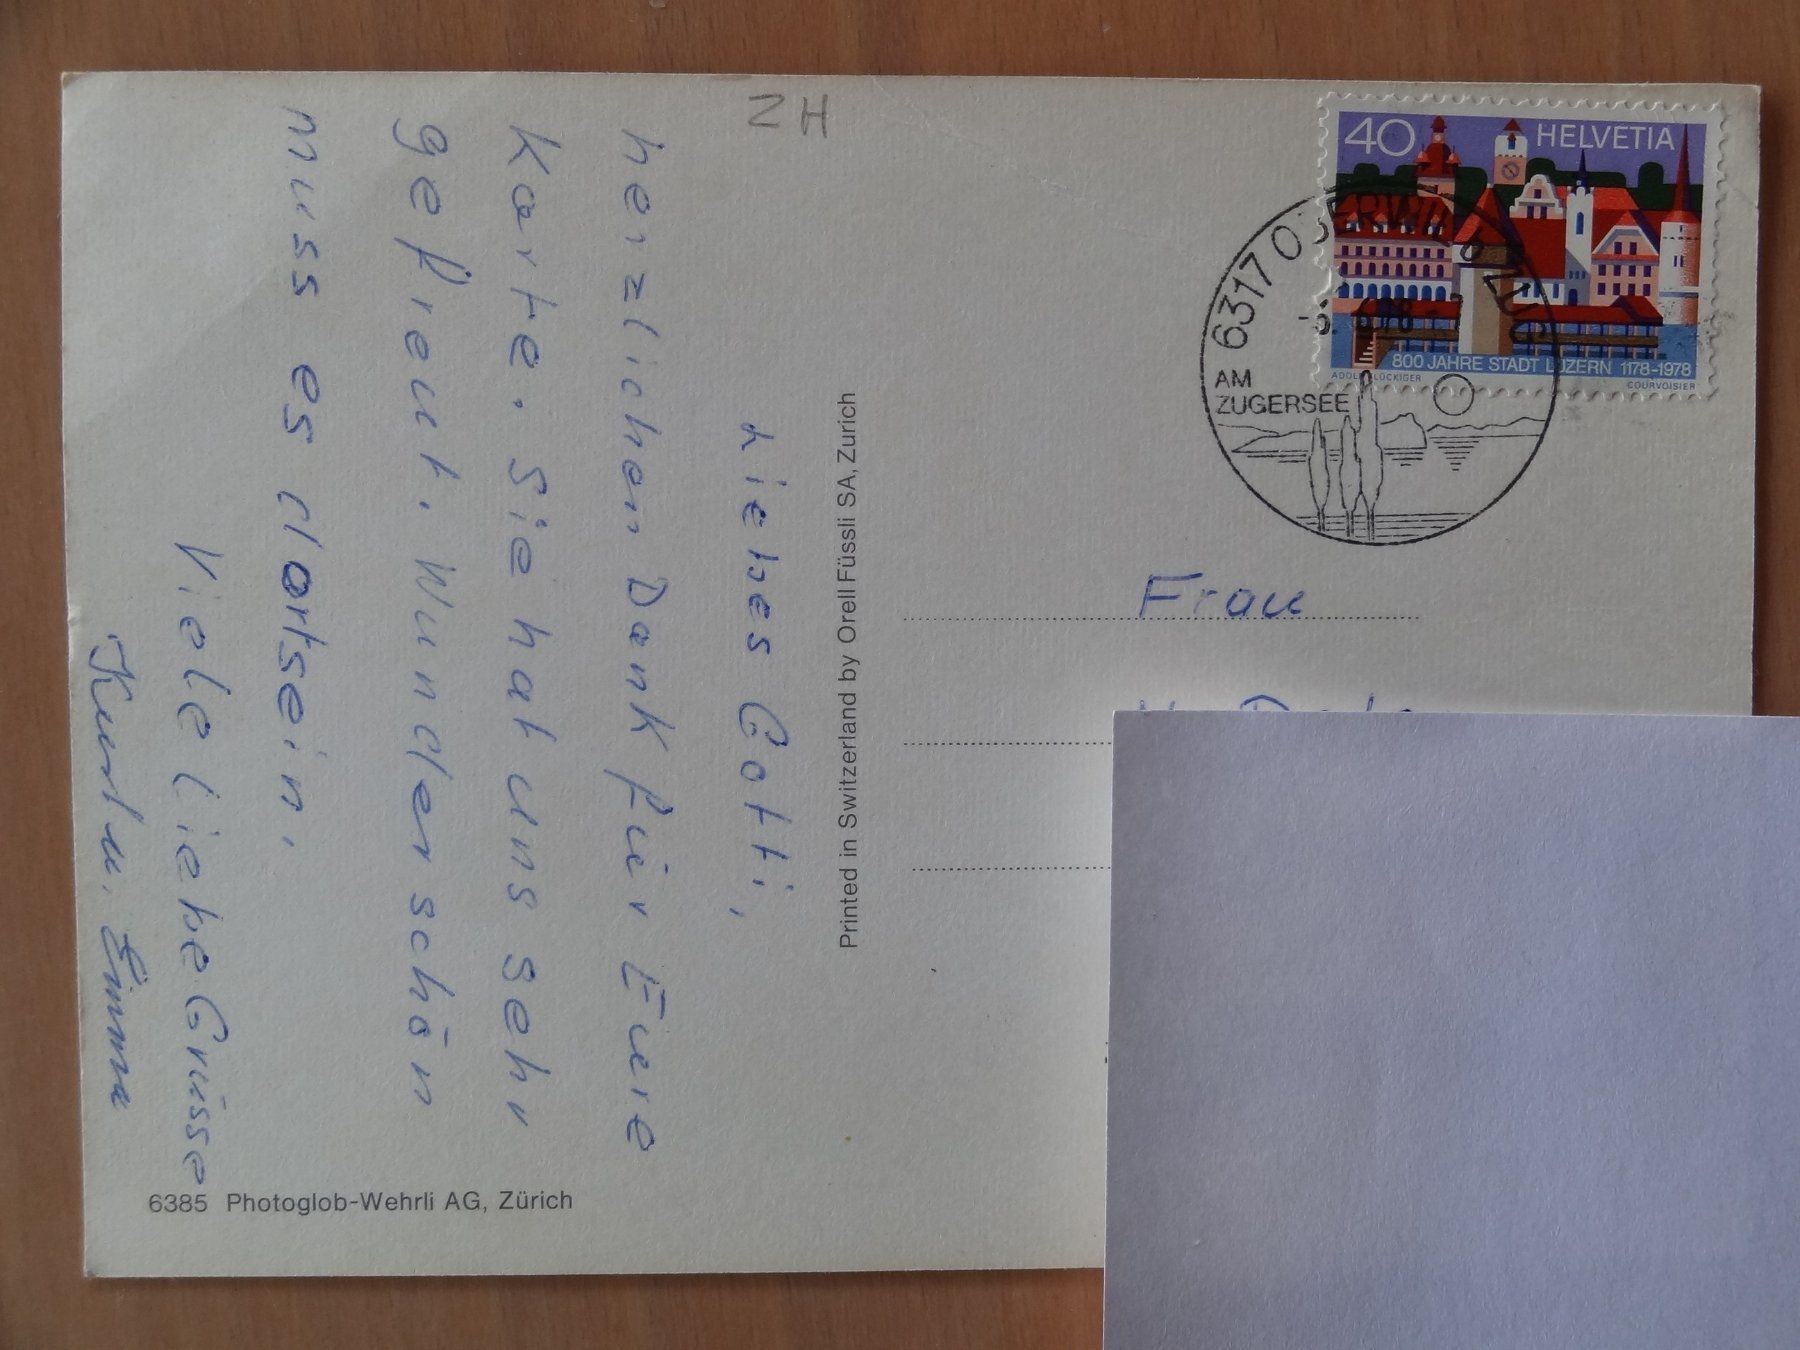 ZH
Liebes Gotti,
herzlichen Dank für Eure
Karte. Sie hat uns sehr
gefreut. Wunderschön
muss es dortsein.
Viele liebe Grüsse
Kurt u. Emma
6385 Photoglob-Wehrli AG, Zürich
Printed in Switzerland by Orell Füssli SA, Zurich
40 HELVETIA
800 JAHRE STADT LUZERN 1178-1978
ADOLF FLÜCKIGER COURVOISIER
6317 OBERWIL B. ZUG
AM
ZUGERSEE
Frau